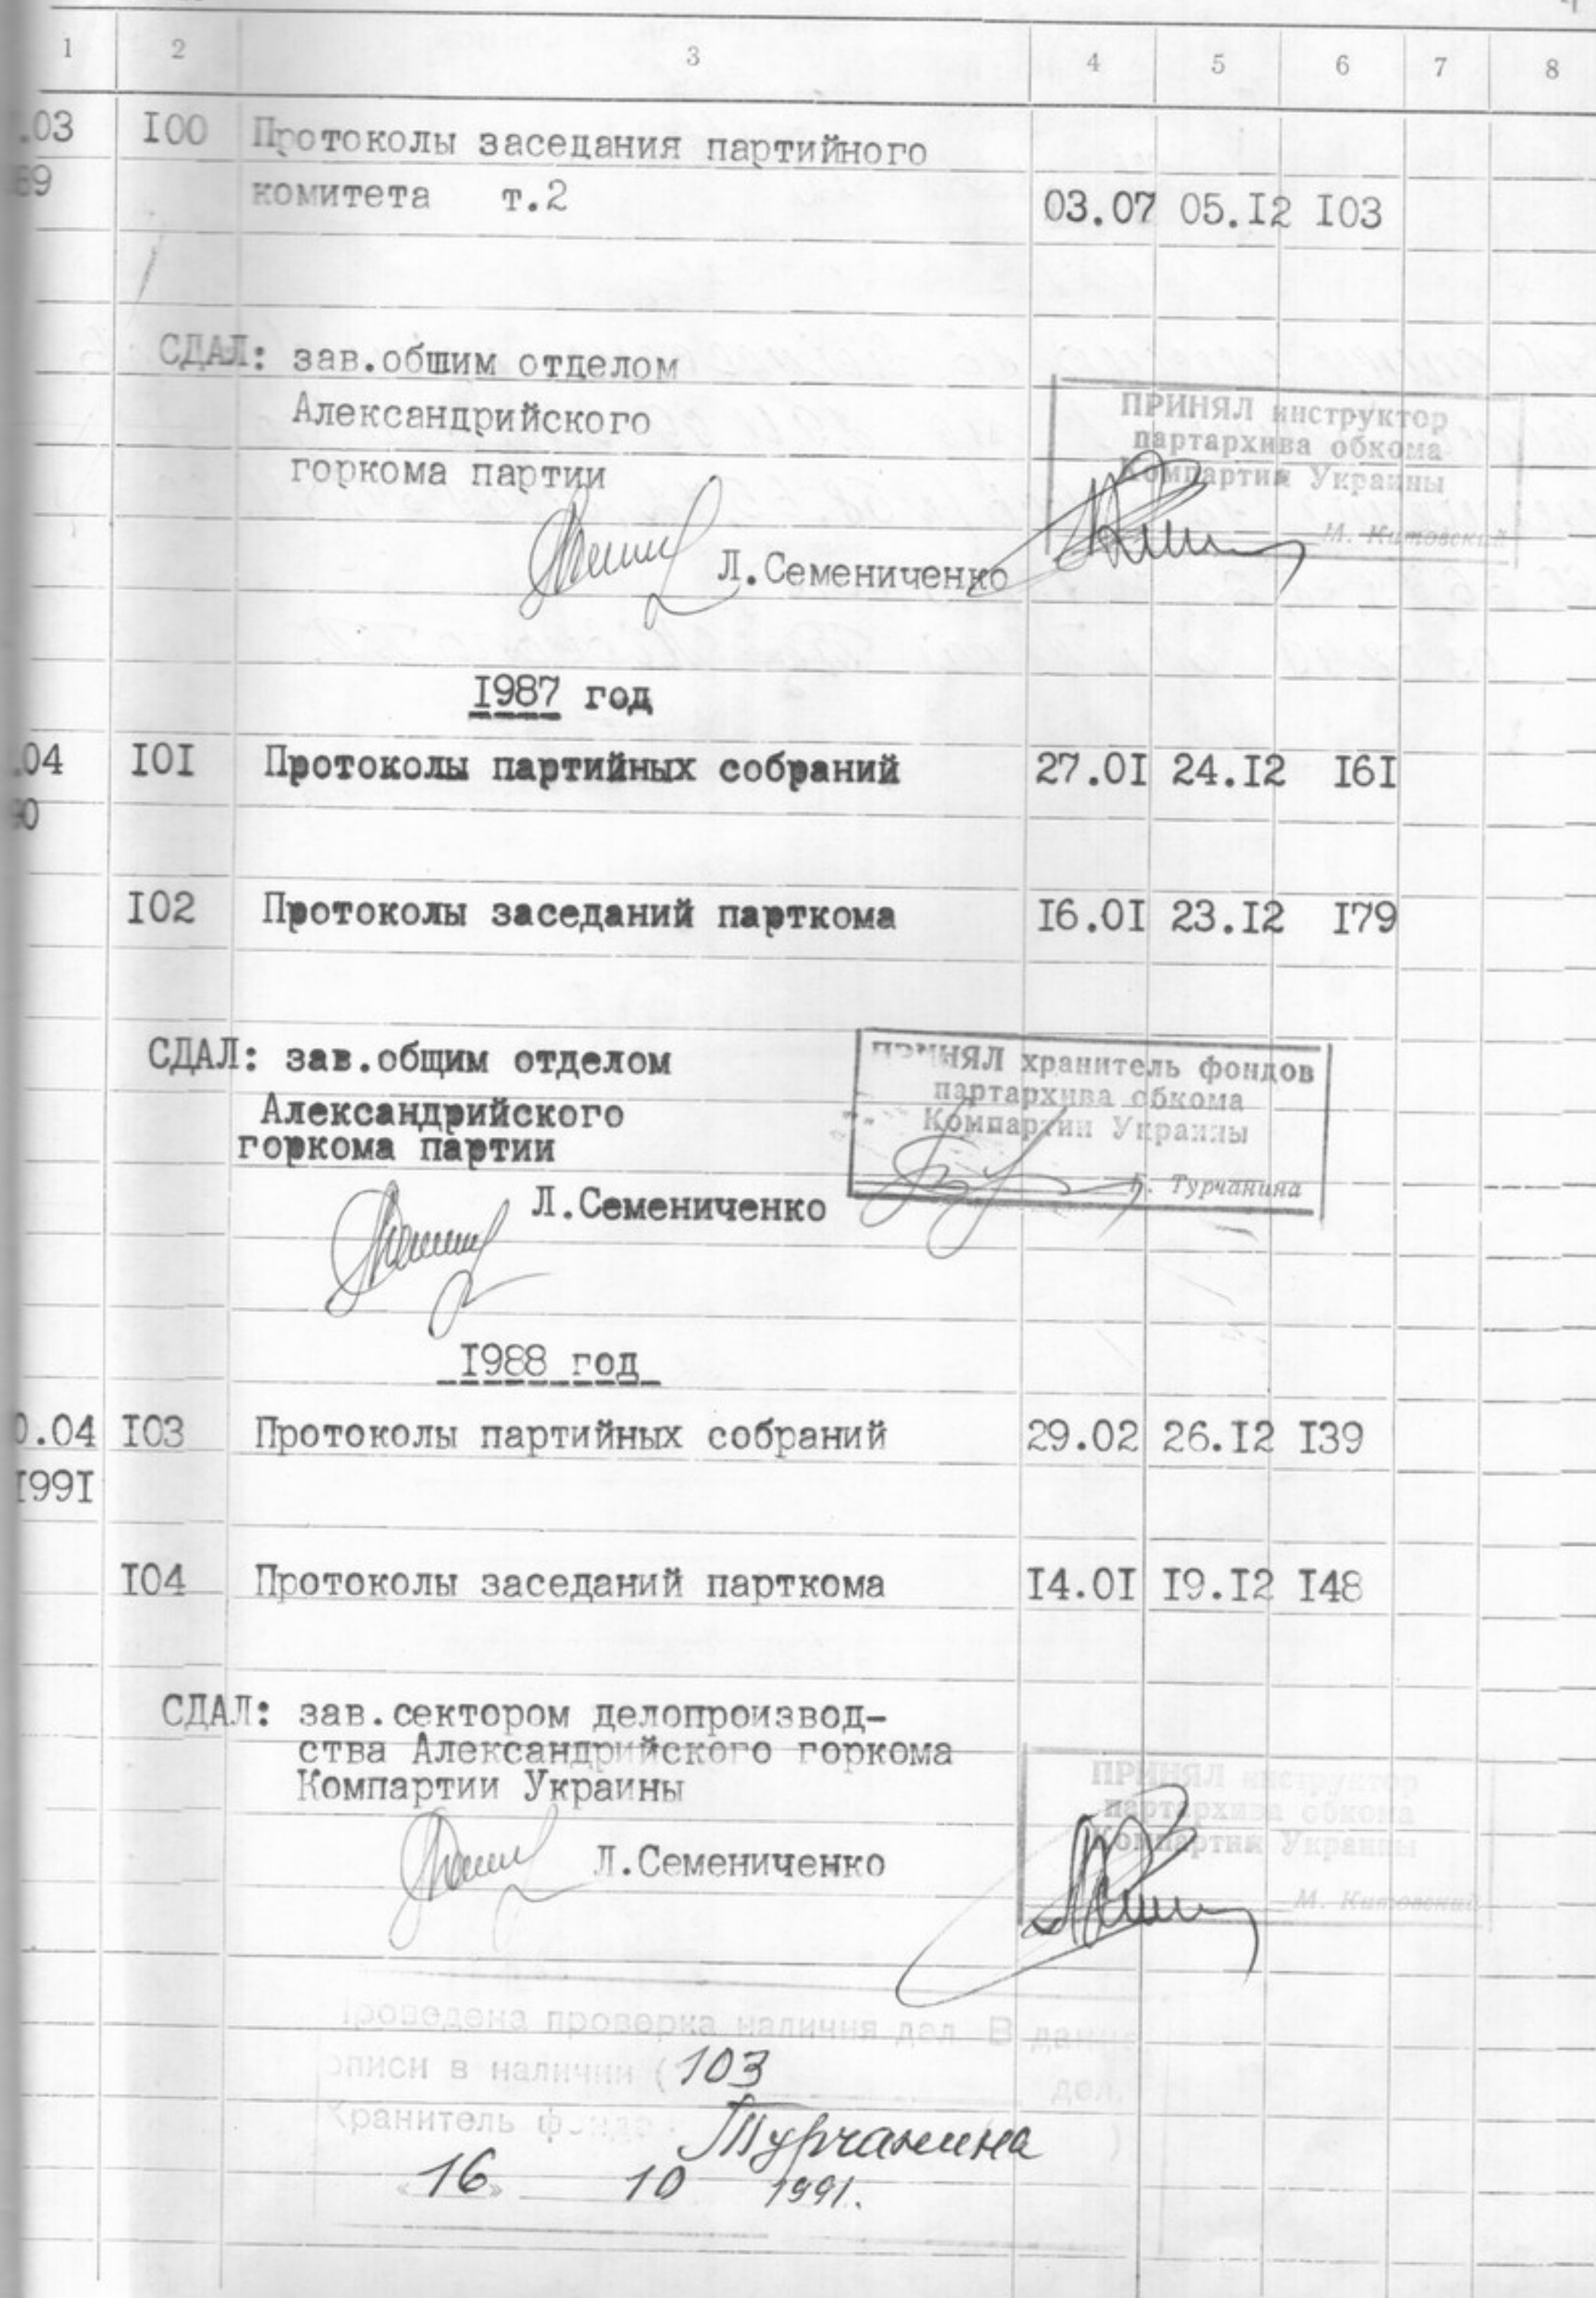 1 2 3 4 5 6 7 8
.03 I00 Протоколы заседания партийного
89 комитета т.2 03.07 05.I2 I03
СДАЛ: зав.обшим отделом
Александрийского
горкома партии
Л.Семениченко
ПРИНЯЛ инструктор
партархива обкома
Компартии Украины
М. Китовский
I987 год
.04 I0I Протоколы партийных собраний 27.0I 24.I2 I6I
90
I02 Протоколы заседаний парткома I6.0I 23.I2 I79
СДАЛ: зав.общим отделом
Александрийского
горкома партии
Л.Семениченко
ПРИНЯЛ хранитель фондов
партархива обкома
Компартии Украины
Турчанина
I988 год
0.04 I03 Протоколы партийных собраний 29.02 26.I2 I39
I99I
I04 Протоколы заседаний парткома I4.0I I9.I2 I48
СДАЛ: зав.сектором делопроизвод-
ства Александрийского горкома
Компартии Украины
Л.Семениченко
ПРИНЯЛ инструктор
партархива обкома
Компартии Украины
М. Китовский
проведена проверка наличия дел. В данно
описи в наличии (103 дел.
Хранитель фонда Турчанина )
«16» 10 1991.